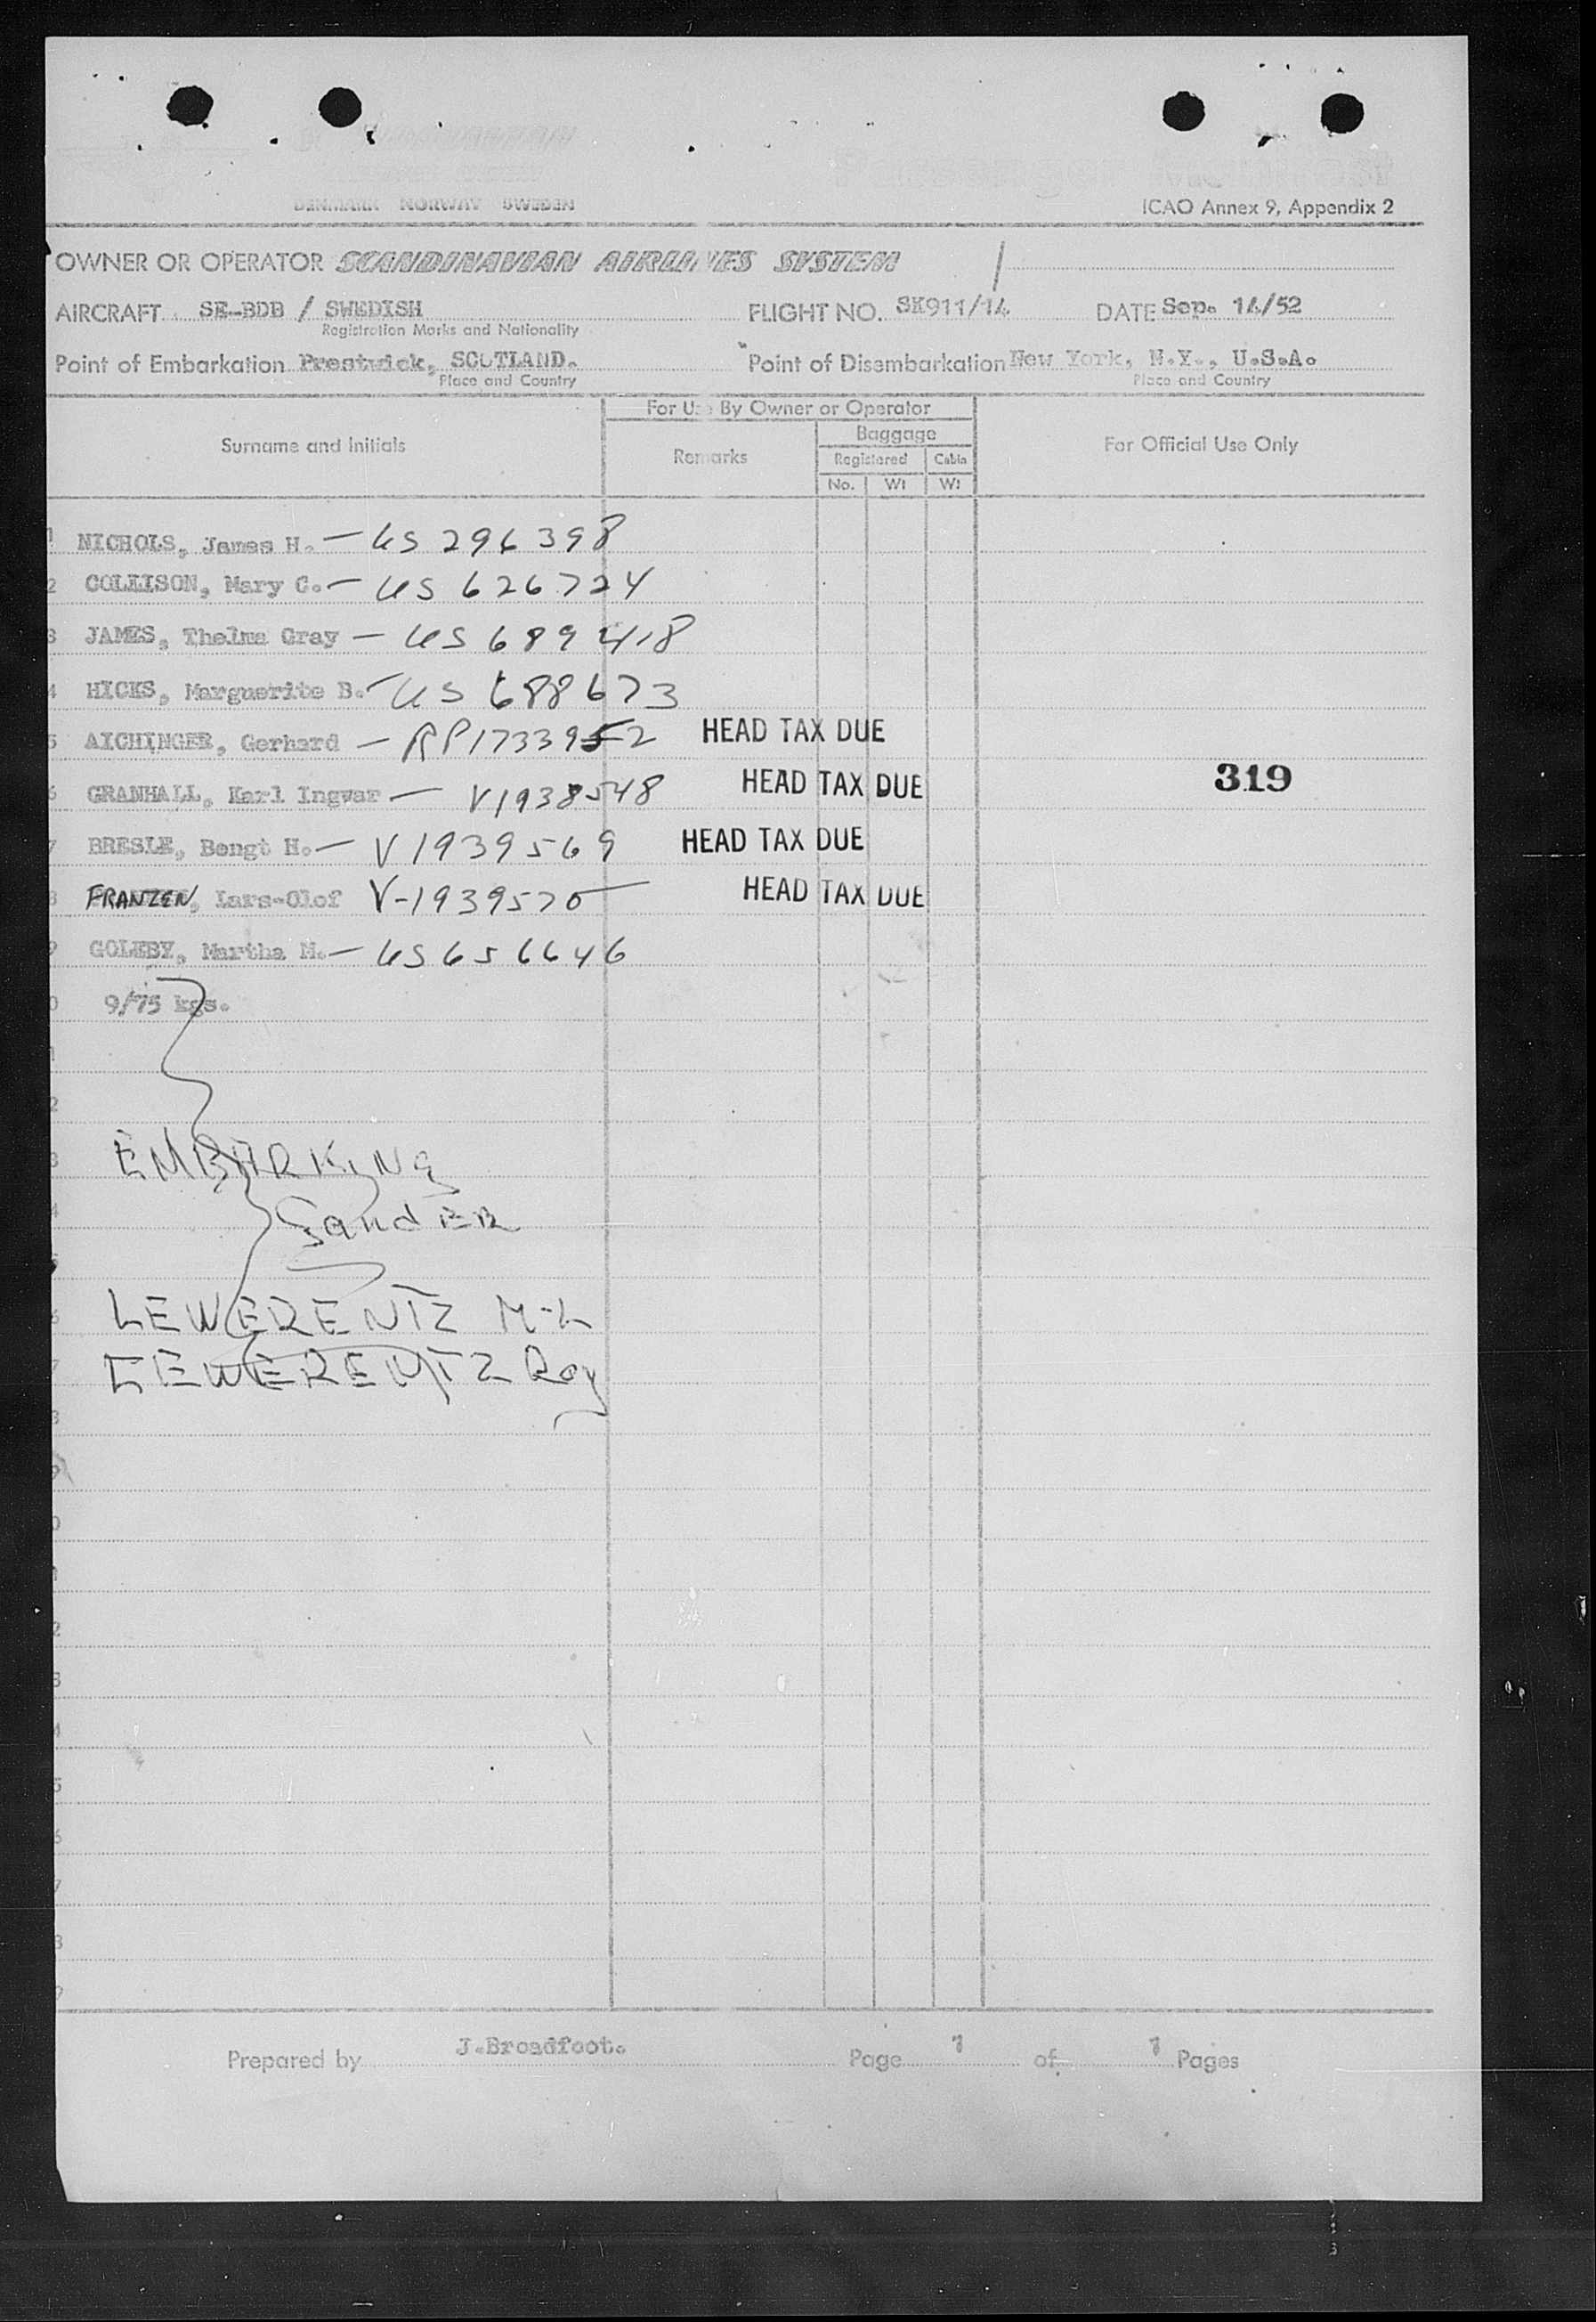 DENMARK NORWAY SWEDEN
Passenger Manifest
ICAO Annex 9, Appendix 2
OWNER OR OPERATOR SCANDINAVIAN AIRLINES SYSTEM
AIRCRAFT SE-BDB / SWEDISH FLIGHT NO. SK911/14 DATE Sep. 14/52
Registration Marks and Nationality
Point of Embarkation Prestwick, SCOTLAND. Point of Disembarkation New York, N.Y., U.S.A.
Place and Country Place and Country
Surname and Initials For Use By Owner or Operator For Official Use Only
Remarks Baggage
Registered Cabin
No. Wt Wt
1 NICHOLS, James H. — US 296398
2 COLLISON, Mary C. — US 626724
3 JAMES, Thelma Gray — US 689418
4 HICKS, Marguerite B. — US 688673
5 AICHINGER, Gerhard — RP1733952 HEAD TAX DUE
6 GRANHALL, Karl Ingvar — V1938548 HEAD TAX DUE 319
7 BRESLE, Bengt H. — V1939569 HEAD TAX DUE
8 FRANZEN, Lars-Olof V-1939570 HEAD TAX DUE
9 GOLEBY, Martha M. — US656646
0 9/75 kgs.
1
2
3 EMBARKING
4 GandER
5
6 LEWERENTZ M-L
7 LEWERENTZ Roy
8
9
0
1
2
3
4
5
6
7
8
9
Prepared by J.Broadfoot. Page 1 of 1 Pages